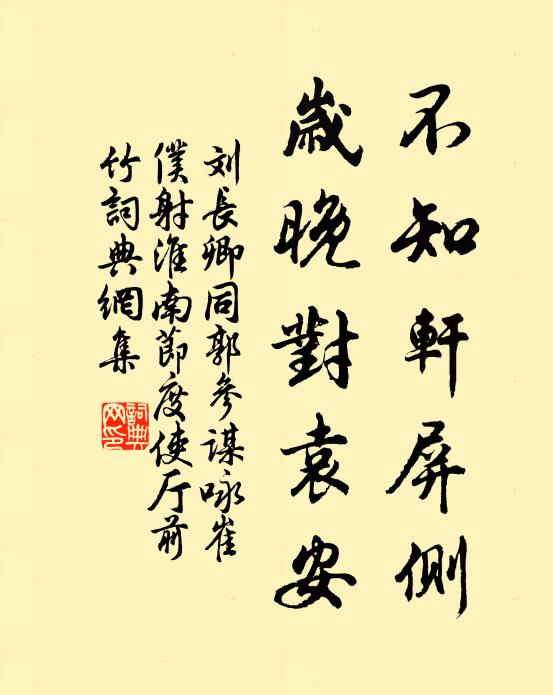 不知軒屏側
歲晚對袁安
刘長卿同郭參谋咏崔
僕射淮南節度使厅前
竹詞典網集
詞典
网印